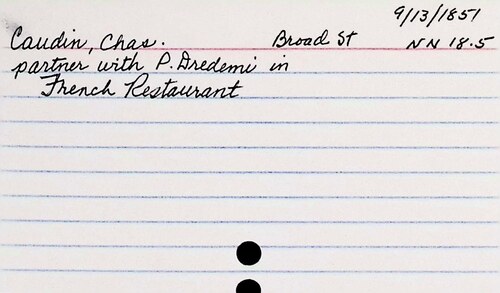 9/13/1851
Caudin, Chas. Broad St NN 18.5
partner with P. Dredemi in
French Restaurant